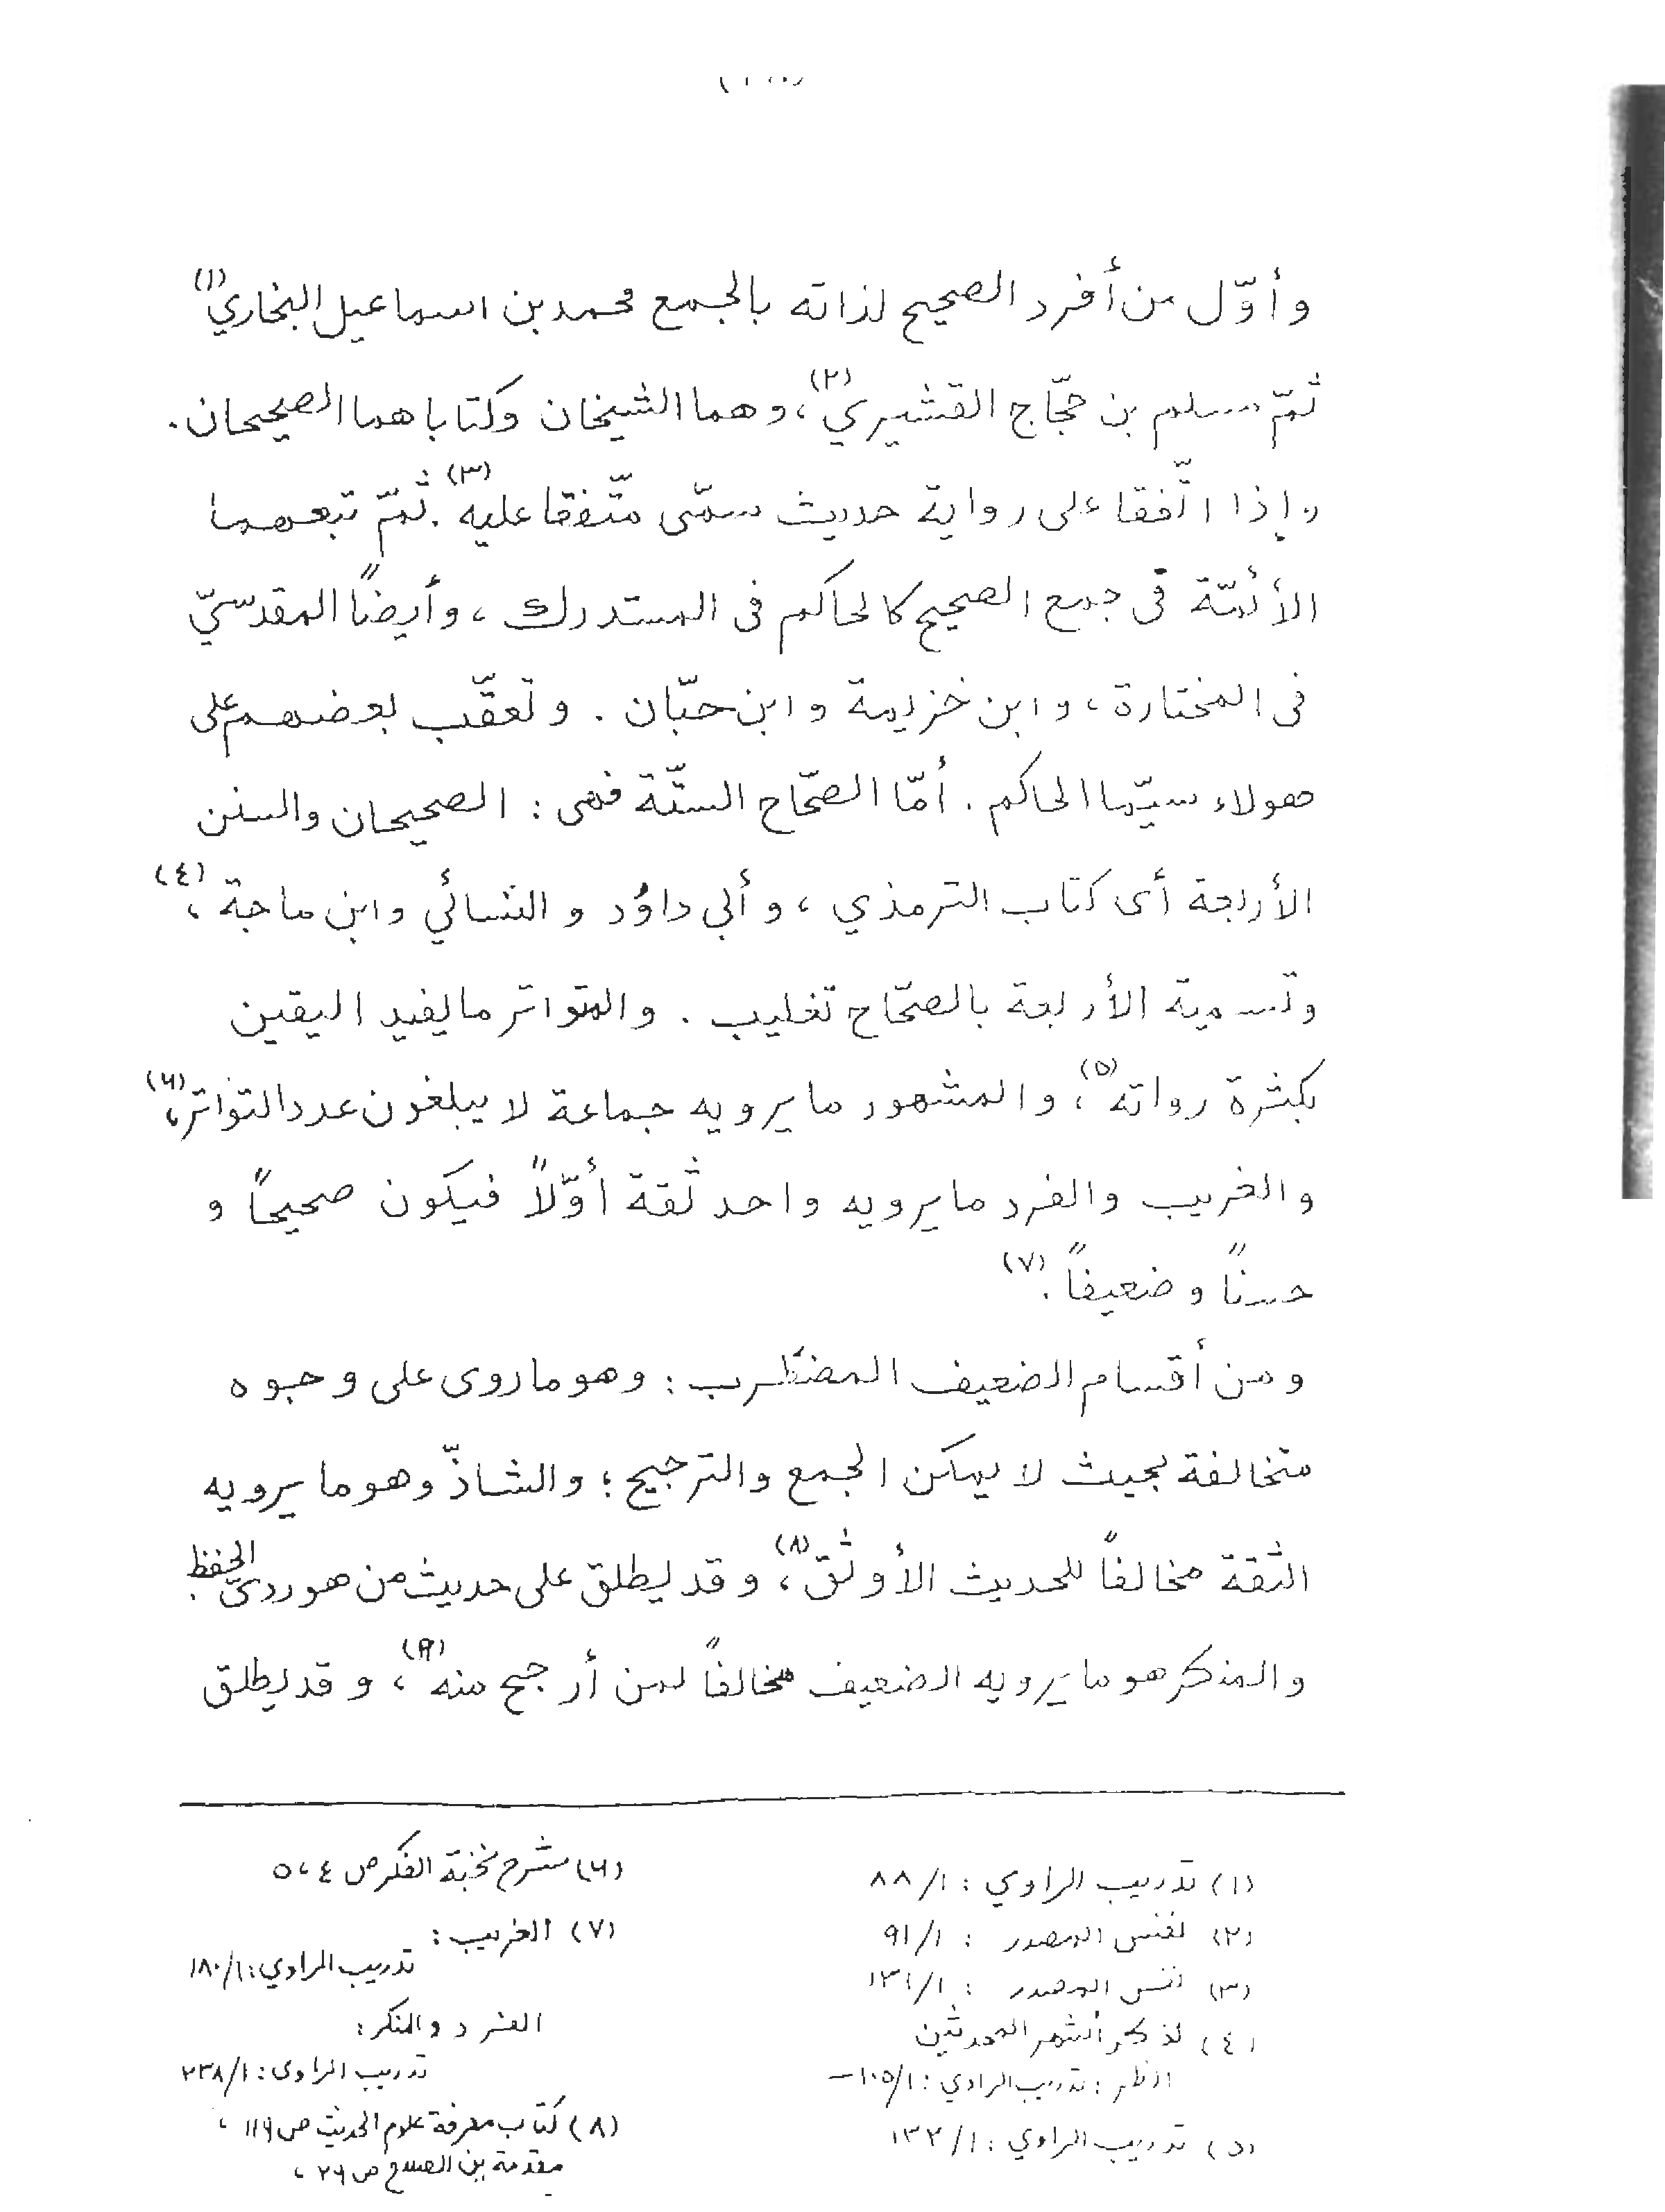 وأوّل من أفرد الصحيح لذاته بالجمع محمد بن اسماعيل البخاري (١)
ثمّ مسلم بن حجّاج القشيري (٢)، وهما الشيخان وكتاباهما الصحيحان.
وإذا اتّفقا على رواية حديث سمّى متّفقا عليه (٣). ثمّ تبعهما
الأئمّة فى جمع الصحيح كالحاكم فى المستدرك، وأيضاً المقدسيّ
فى المختارة، وابن خزيمة وابن حبّان. وتعقّب بعضهم على
هولاء سيّما الحاكم. أمّا الصحّاح الستّة فهى: الصحيحان والسنن
الأربعة أى كتاب الترمذي، وأبي داوُد والنسائي وابن ماجة (٤)،
وتسمية الأربعة بالصحّاح تغليب. والمتواتر ما يفيد اليقين
بكثرة رواته (٥)، والمشهور ما يرويه جماعة لا يبلغون عدد التواتر (٦)،
والغريب والفرد ما يرويه واحد ثقة أوّلاً فيكون صحيحاً و
حسناً وضعيفاً (٧).
ومن أقسام الضعيف المضطرب: وهو ما روى على وجوه
متخالفة بحيث لا يمكن الجمع والترجيح؛ والشاذّ وهو ما يرويه
الثقة مخالفاً للحديث الأوثق (٨)، وقد يطلق على حديث من هو ردىّ الحفظ.
والمنكر هو ما يرويه الضعيف مخالفاً لمن أرجح منه (٩)، وقد يطلق
(١) تدريب الراوي: ١/٨٨
(٢) نفس المصدر: ١/٩١
(٣) نفس المصدر: ١/١٣١
(٤) لذكر أشهر المحدثين
انظر: تدريب الراوي: ١/١٠٥–
(٥) تدريب الراوي: ١/١٣٢
(٦) شرح نخبة الفكر ص ٤، ٥
(٧) الغريب:
تدريب الراوي: ١/١٨٠
الفرد والمنكر:
تدريب الراوى: ١/٢٣٨
(٨) كتاب معرفة علوم الحديث ص ١١٩،
مقدمة بن الصلاح ص ٢٦،